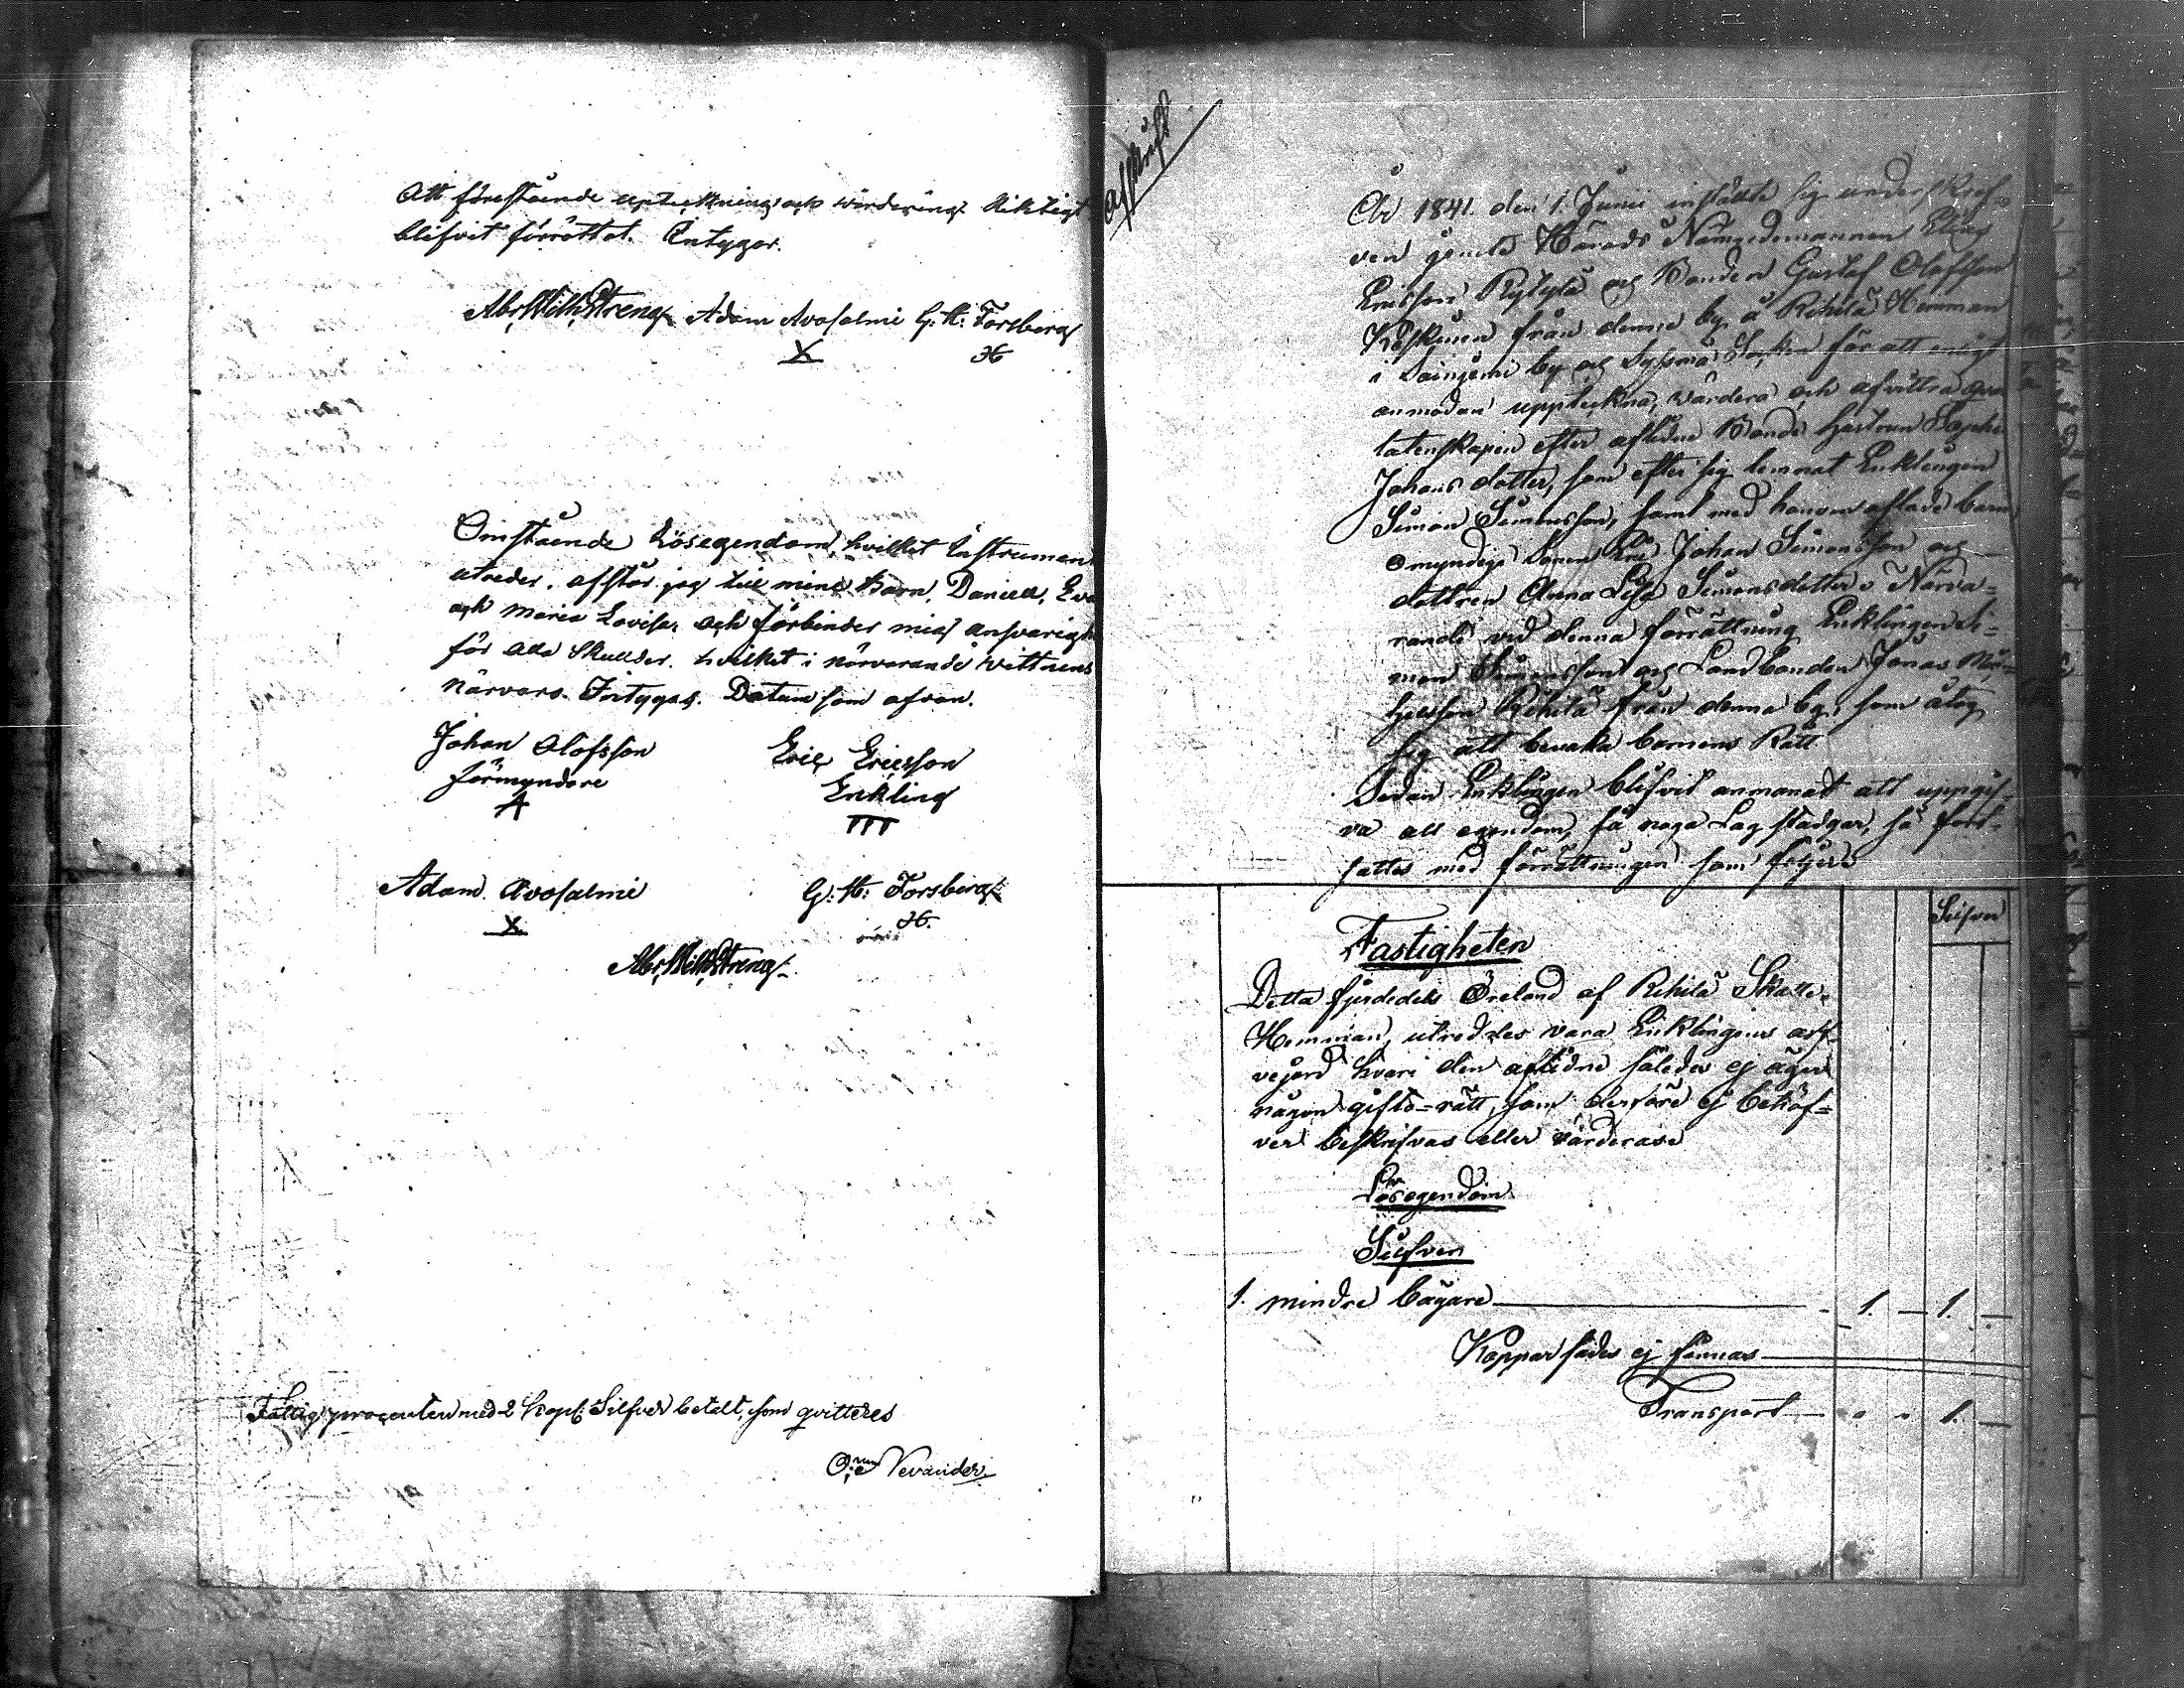 Att förestående upteckning och wärdering riktigt
blifvit förrättat. Intygar.
Abr. Wilh. Streng Adam Avosalmi G. H: Forsberg
X H
Omstående Lösegendom, hvilket Instrument
utreder, afstår jag till mine Barn, Daniel, Eva
och Maria Lovisa, och förbinder mig ansvarig
för alla Skullder. hvilket i närvarande Wittnens
närvaro. Intygas. Datum som ofvan.
Johan Olofsson Eric Ericsson
förmyndare Enkling
A TTT
Adam Avosalmi G: H: Forsberg
X H.
Abr. Wilh. Streng
Fattigprocenten med 2 kop: Silfver betalt, som qvitteres
Nevander
Afskrift
År 1841. den 1. Junii instälte sig underskref-
ven jemte Härads Nämndemannen Elias
Ericsson Rylylä og Bonden Gustaf Olofsson
Koskinen från denne by å Rihilä Hemman
i by og Sysmä Socken för att enligt
anmodan uppteckna, värdera och afvittra qvar
latenskapen efter aflidne Bonde hustrun Sophia
Johans dotter, som efter sig lemnat Enklingen
Simon Simonsson, samt med honom aflade barn
omyndige Sonen Johan Simonsson og
dottren Anna Lisa Simonsdotter. Närva=
rande vid denna förrättning Enklingen Si=
mon Simonsson og Landbonden Jonas
Rihilä från denna by, som åtog
sig att bevaka barnens Rätt
Sedan Enklingen blifvit anmanat att uppgif-
va all egendom, så noga Lag stadgar, så fort-
sattes med förrättningen som följer
Silfver
Fastigheten
Detta fjerdedels Öreland af Rihilä Skatte=
Hemman, utreddes vara Enklingens arf-
vejord hvari den aflidne således ej äger
någon gifto=rätt, som derföre ej behöf=
ver beskrifvas eller värderas
Lösegendom
Silfver
1. mindre bägare — 1. — 1. —
Koppar sades ej finnas
Transport — " " 1. —